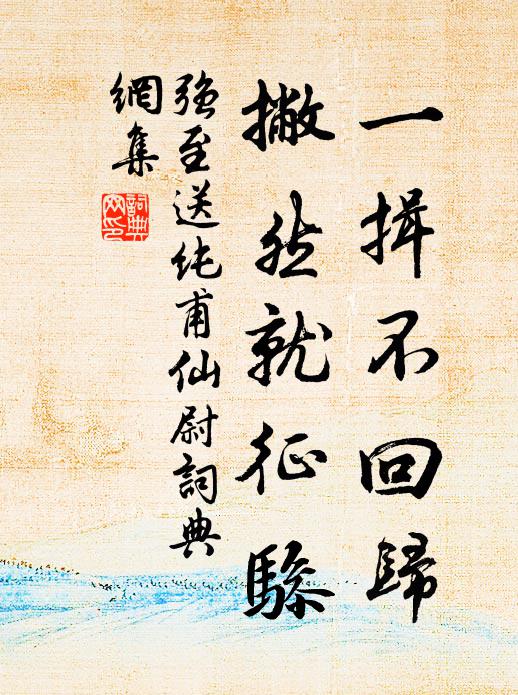 一揖不回歸
撇然就征驂
強至送純甫仙尉詞典
網集
詞典
网印